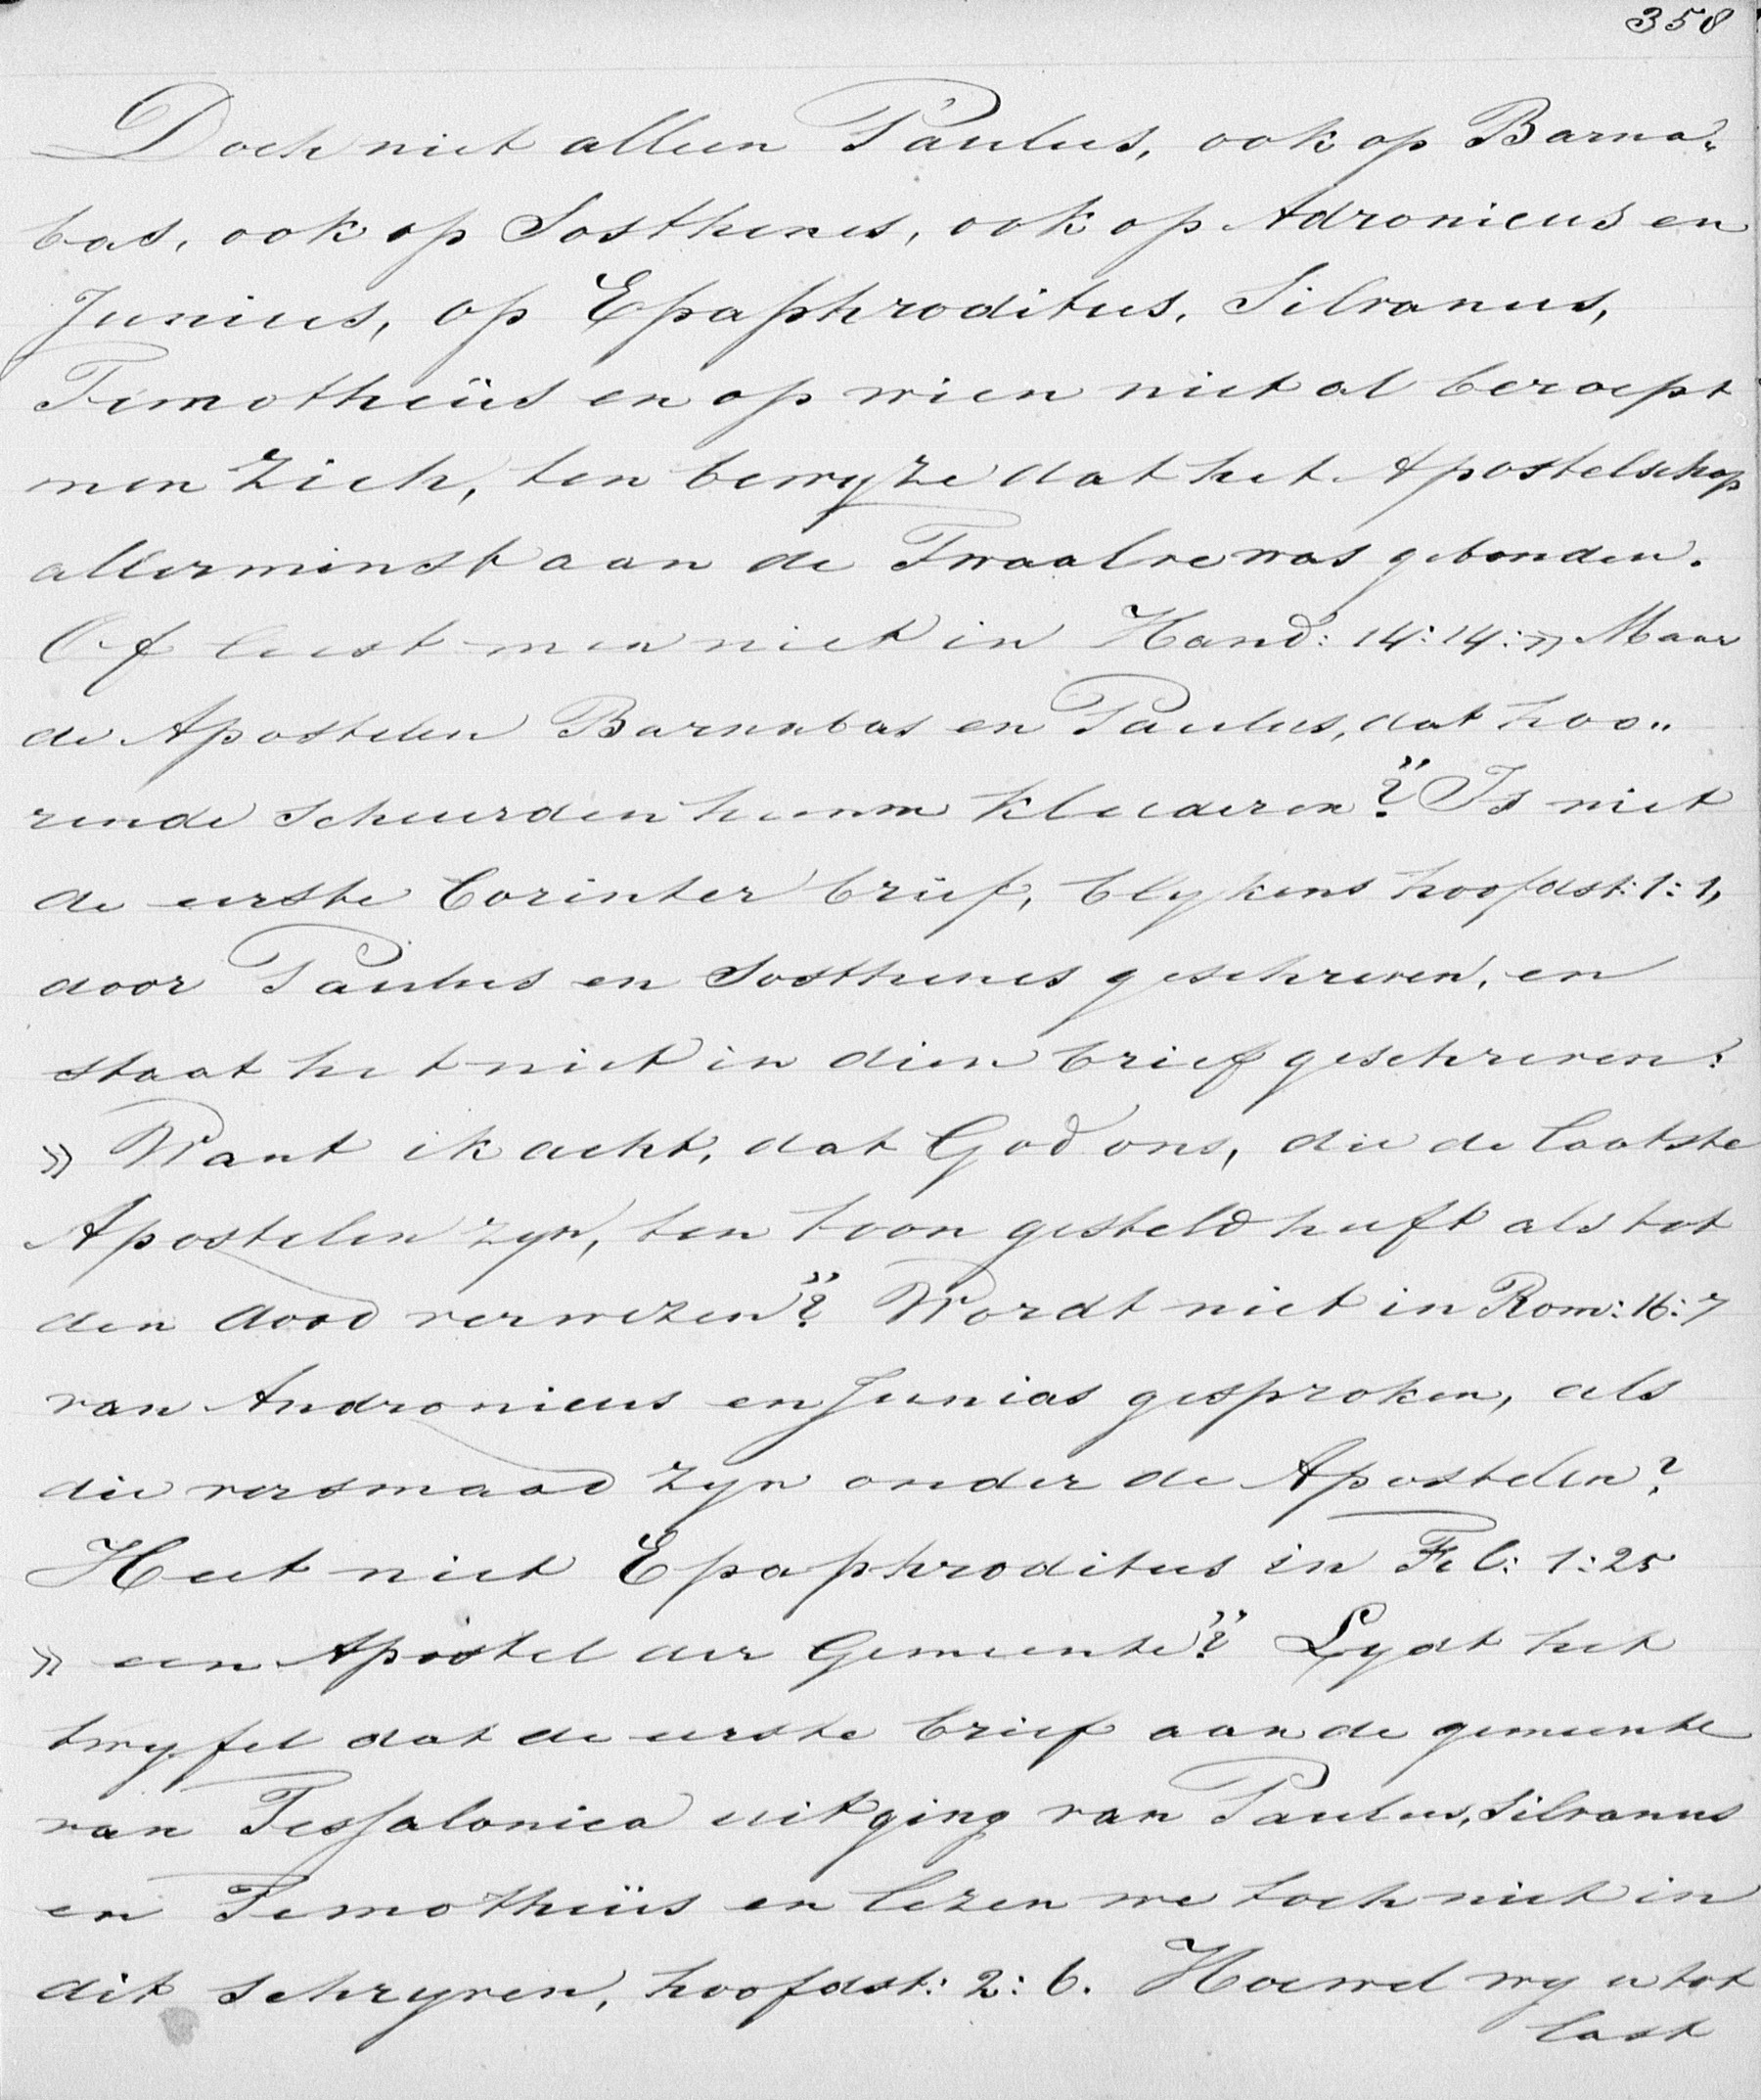 358
Doch niet alleen Paulus, ook op Barna„
bas, ook op Sosthenes, ook op Adronicus en
Junius, op Epaphroditus, Silvanus,
Timotheüs en op wien niet al beroept
men zich, ten bewyze dat het Apostelschap
allerminst aan de Twaalve was gebonden.
Of leest men niet in Hand: 14:14: » Maar
de Apostelen Barnabas en Paulus, dat hoo„
rende scheurden hunne kleederen"? Is niet
de eerste Corinter brief, blykens hoofdst: 1:1,
door Paulus en Sosthenes geschreven, en
staat het niet in dien brief geschreven:
» Want ik acht, dat God ons, die de laatste
Apostelen zyn, ten toon gesteld heeft als tot
den dood verwezen"? Wordt niet in Rom: 16:7
van Andronicus en Junias gesproken, als
die versmaad zyn onder de Apostelen?
Heet niet Epaphroditus in Fil: 1:25
» een Apostel der Gemeente"? Lydt het
twyfel dat de eerste brief aan de gemeente
van Tessalonica uitging van Paulus, Silvanus
en Timotheüs en lezen we toch niet in
dit schryven, hoofdst: 2:6. Hoewel wy u tot
last